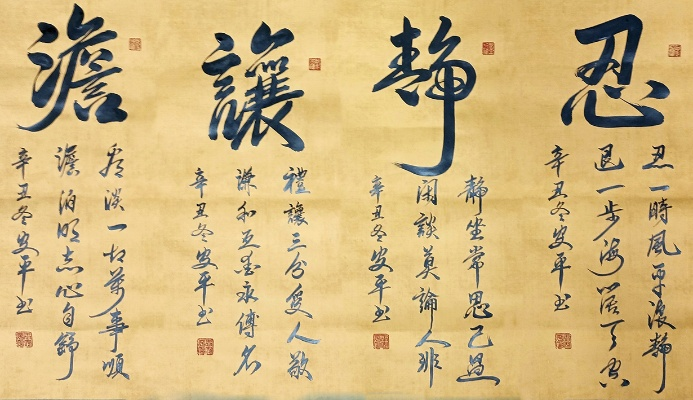 忍
忍一時風平浪靜
退一步海濶天空
辛丑冬安平书
靜
靜坐常思己過
閑談莫論人非
辛丑冬安平书
讓
禮讓三分受人敬
謙和互重永傳名
辛丑冬安平书
澹
看淡一切萬事順
澹泊明志心自舒
辛丑冬安平书